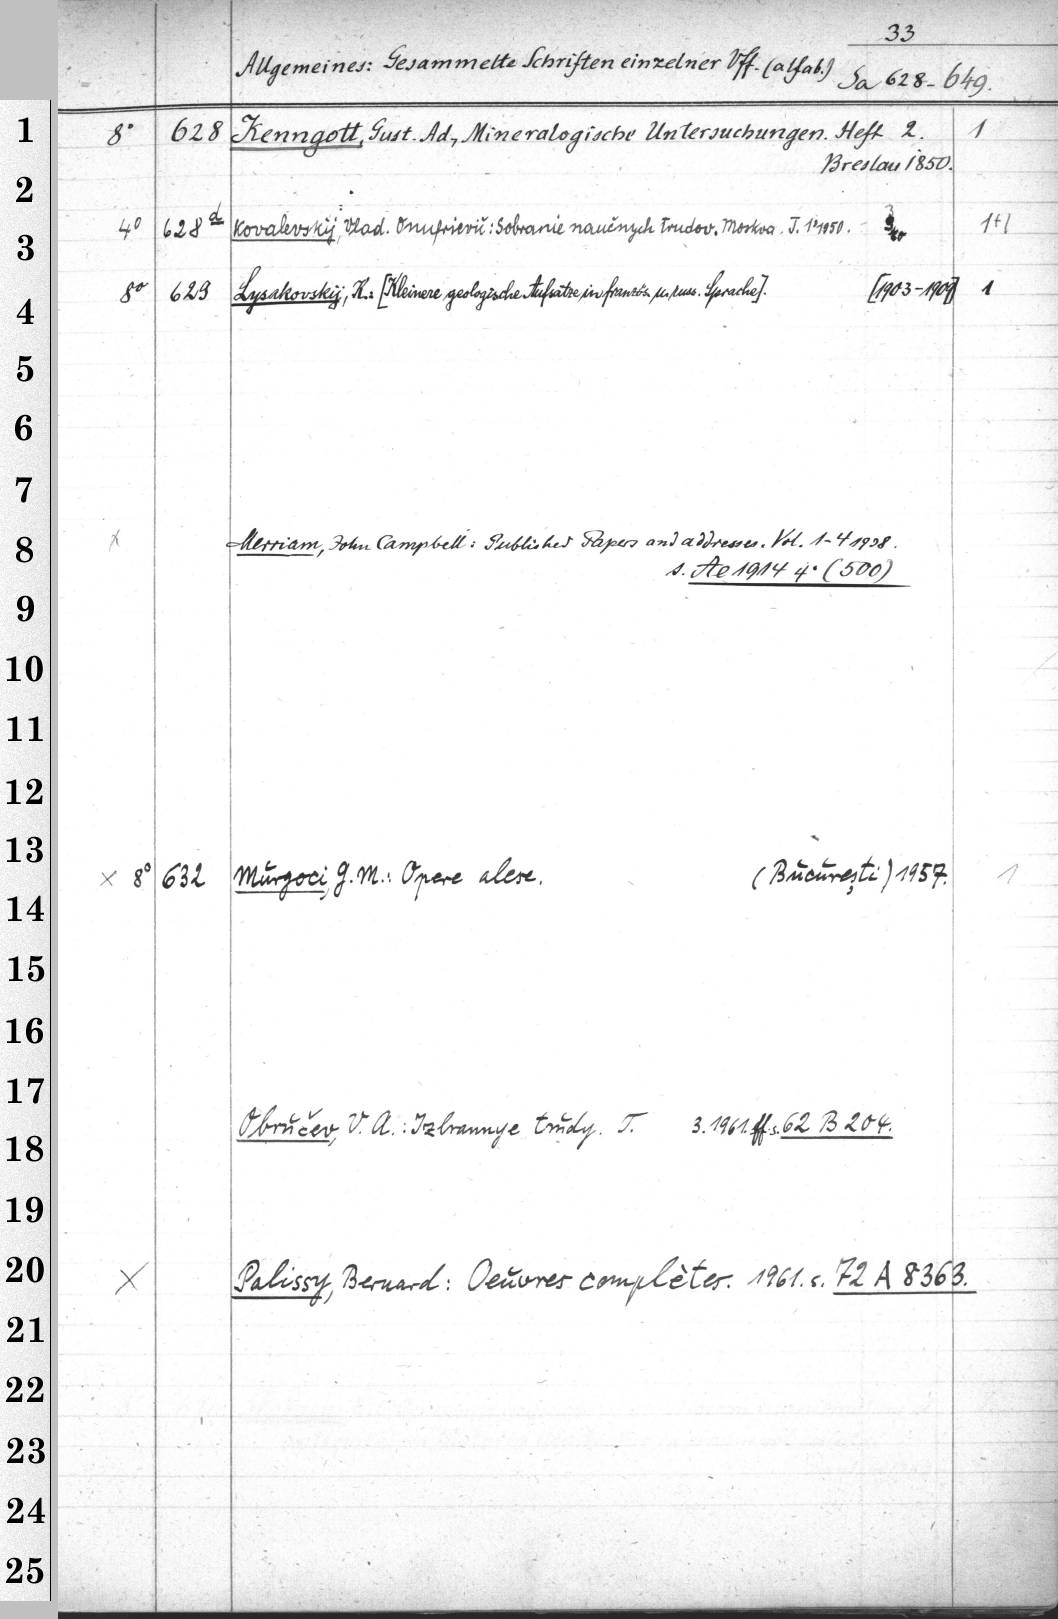 33
Allgemeines: Gesammelte Schriften einzelner Vff. (alfab.) Sa 628-649.
1 8° 628 Kenngott, Gust. Ad., Mineralogische Untersuchungen. Heft 2. 1
Breslau 1850.
2
3 4° 628d Kovalevskij, Vlad. Onufrievič: Sobranie naučnych trudov. Moskva. T. 1. 1950. 1+1
4 8° 629 Lysakovskij, K.: [Kleinere geologische Aufsätze in französ. u. russ. Sprache]. [1903-1909] 1
5
6
7
8 x Merriam, John Campbell: Published Papers and addresses. Vol. 1-4 1938.
s. Ae 1914 4° (500)
9
10
11
12
13 x 8° 632 Murgoci, G. M.: Opere alese. (Bucureşti) 1957. 1
14
15
16
17
18 Obručev, V. A.: Izbrannye trudy. T. 3. 1961. ff s. 62 B 204.
19
20 x Palissy, Bernard: Oeuvres complètes. 1961. s. 72 A 8363.
21
22
23
24
25